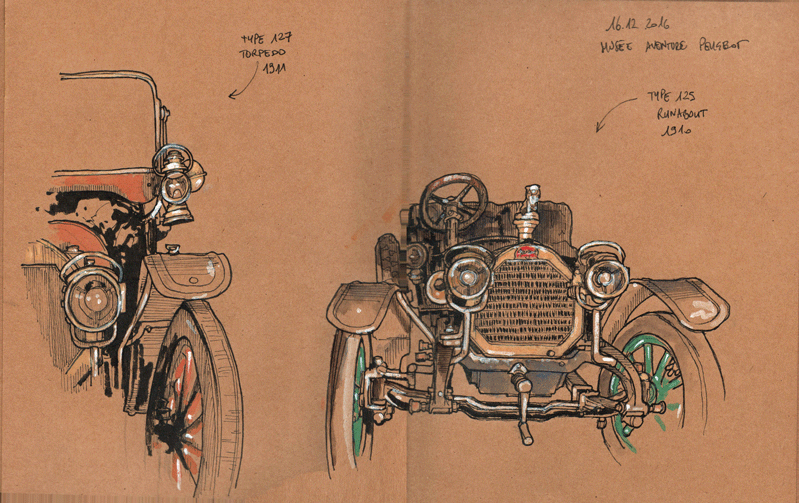 TYPE 127
TORPEDO
1911
16.12 2016
MUSÉE AVENTURE PEUGEOT
TYPE 125
RUNABOUT
1910